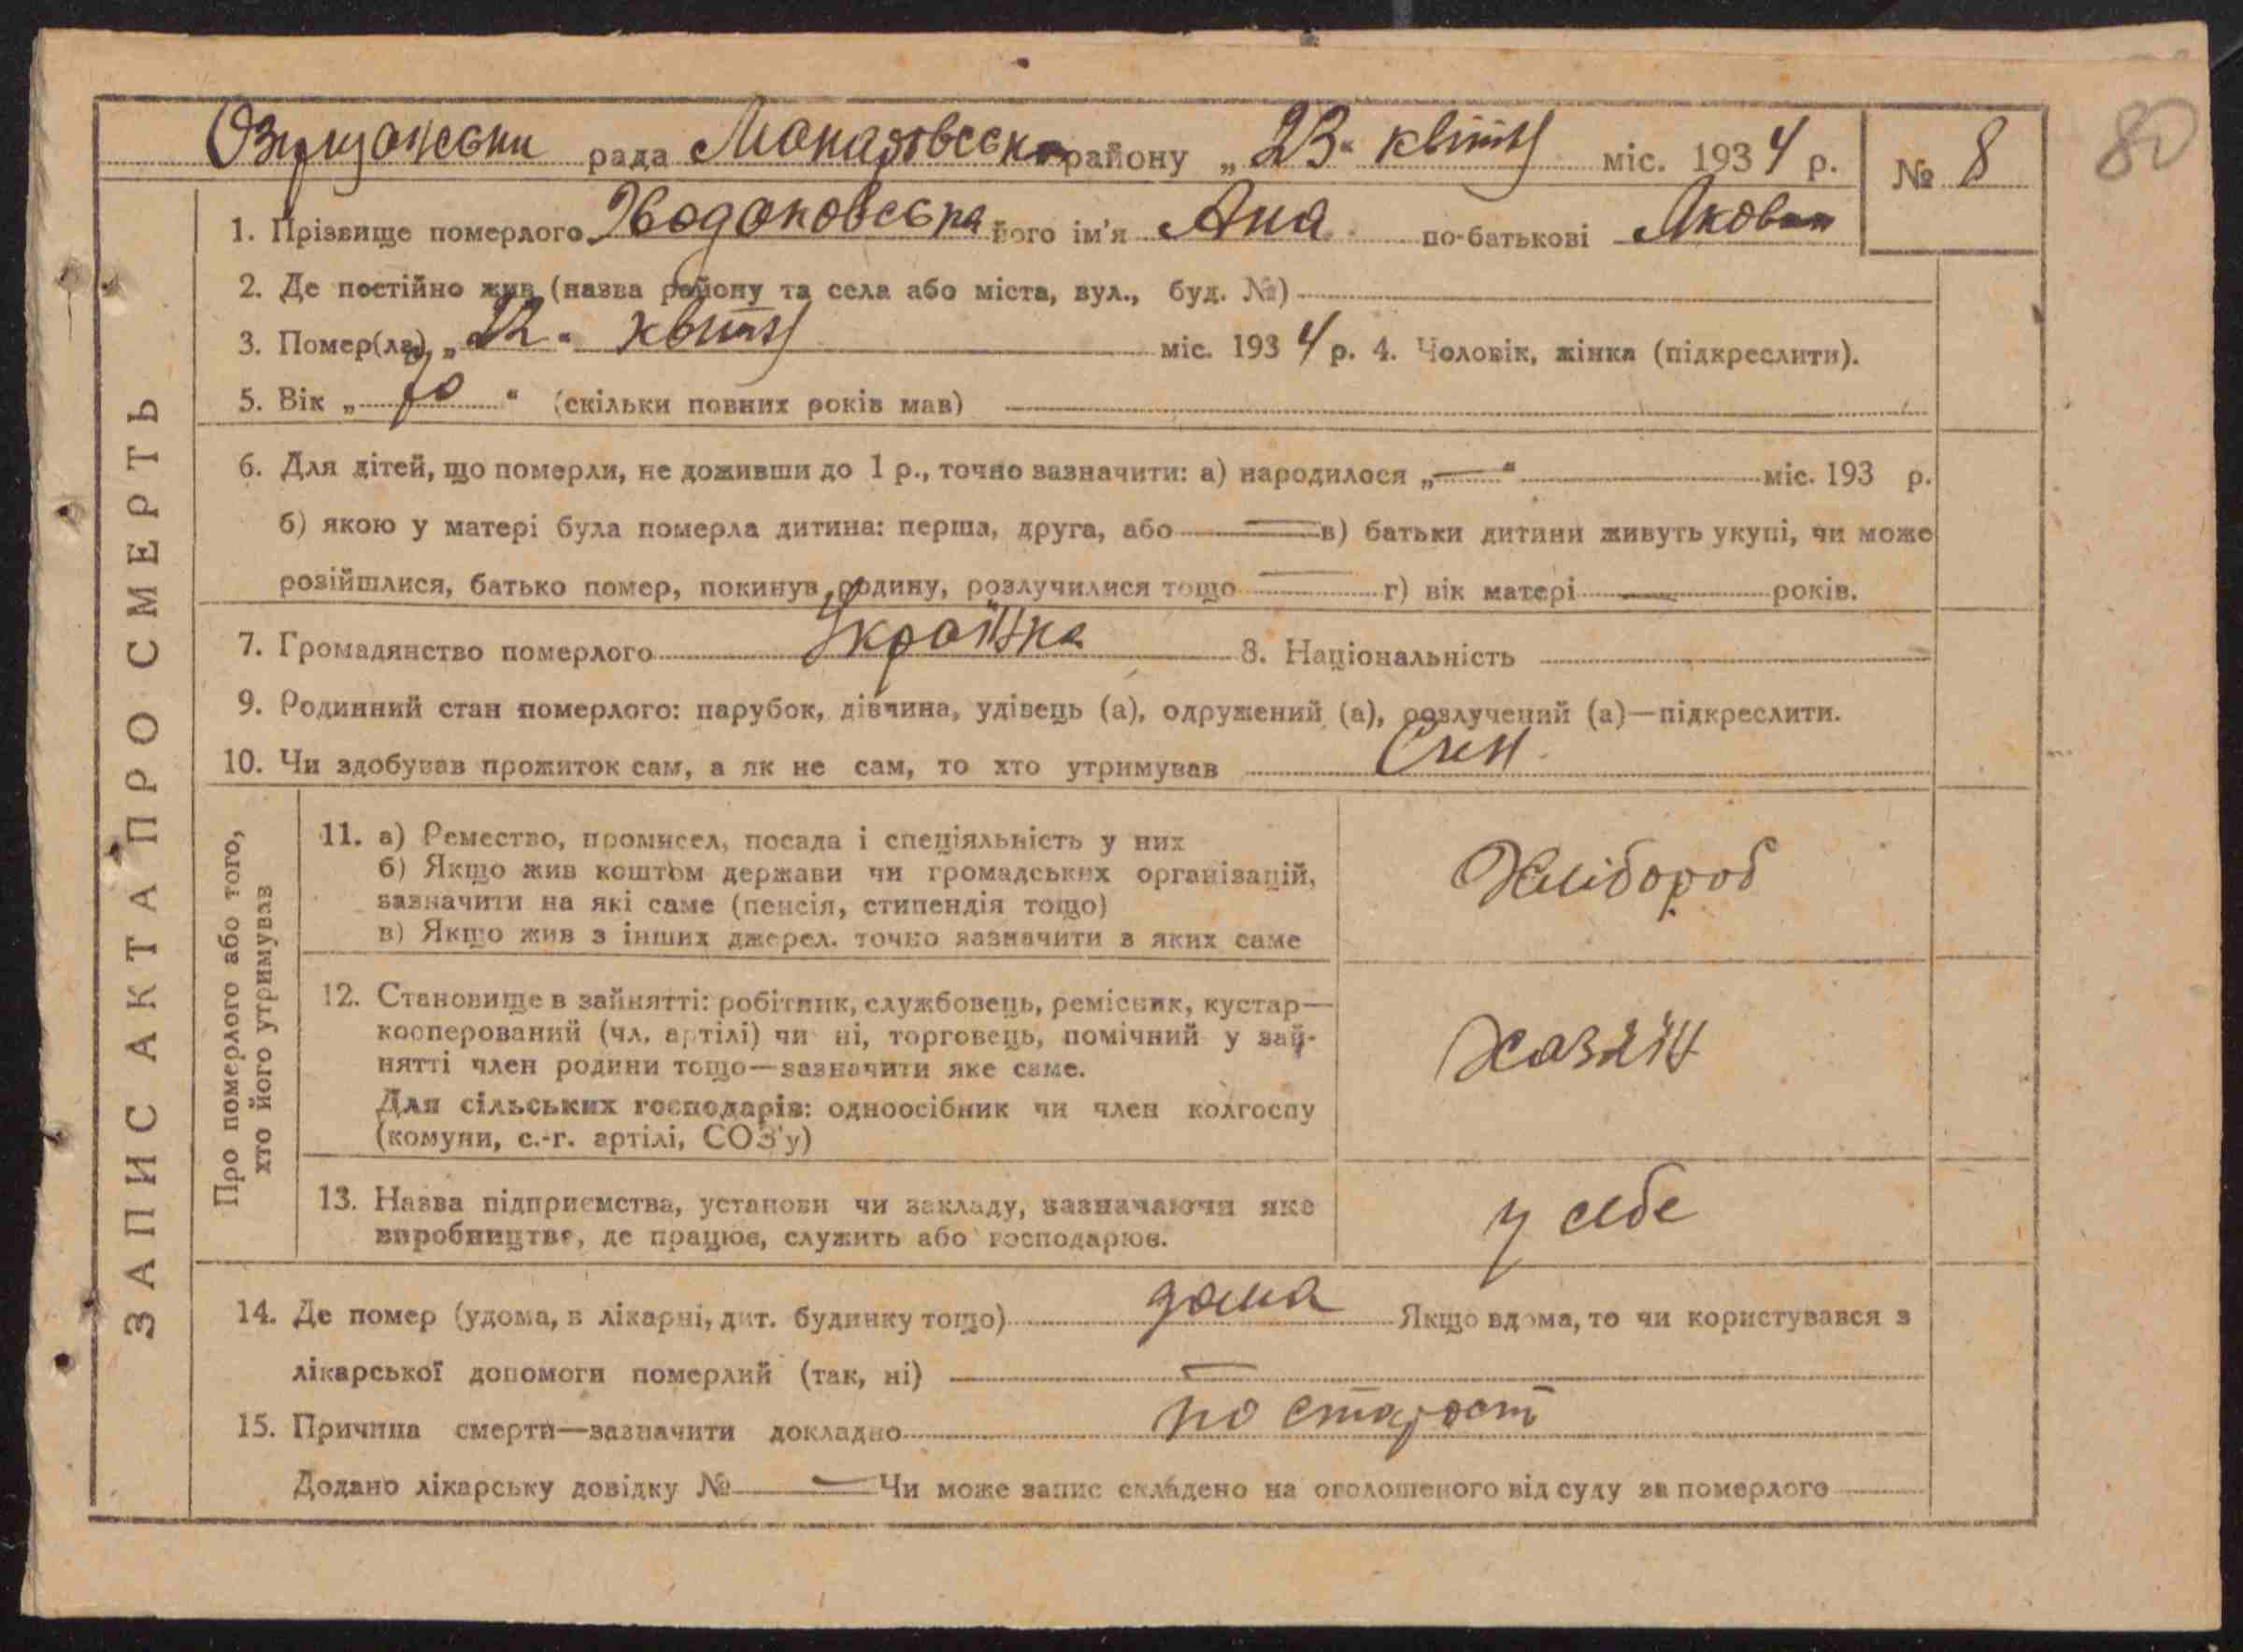 80
рада Макарівськ району „23“ квітн міс. 1934 р. № 8
1. Прізвище померлого його ім'я Ана по-батькові Яковл
2. Де постійно жив (назва району та села або міста, вул., буд. №)
3. Помер(ла) „22“ квітн міс. 1934 р. 4. Чоловік, жінка (підкреслити).
5. Вік „ “ (скільки повних років мав)
6. Для дітей, що померли, не доживши до 1 р., точно зазначити: а) народилося „—“ міс. 193 р.
б) якою у матері була померла дитина: перша, друга, або — в) батьки дитини живуть укупі, чи може
розійшлися, батько помер, покинув родину, розлучилися тощо — г) вік матері — років.
7. Громадянство померлого Українка 8. Національність
9. Родинний стан померлого: парубок, дівчина, удівець (а), одружений (а), розлучений (а)—підкреслити.
10. Чи здобував прожиток сам, а як не сам, то хто утримував Син
ЗАПИС АКТА ПРО СМЕРТЬ
Про померлого або того,
хто його утримував
11. а) Ремество, промисел, посада і спеціяльність у них
б) Якщо жив коштом держави чи громадських організацій,
зазначити на які саме (пенсія, стипендія тощо)
в) Якщо жив з інших джерел, точно зазначити з яких саме
Хлібороб
12. Становище в зайнятті: робітник, службовець, ремісник, кустар—
кооперований (чл. артілі) чи ні, торговець, помічний у зай-
нятті член родини тощо—зазначити яке саме.
Для сільських господарів: одноосібник чи член колгоспу
(комуни, с.-г. артілі, СОЗ'у)
Хазяїн
13. Назва підприємства, установи чи закладу, зазначаючи яке
виробництве, де працює, служить або господарює.
у себе
14. Де помер (удома, в лікарні, дит. будинку тощо) дома Якщо вдома, то чи користувався з
лікарської допомоги померлий (так, ні) —
15. Причина смерти—зазначити докладно по старост
Додано лікарську довідку № — Чи може запис складено на оголошеного від суду за померлого